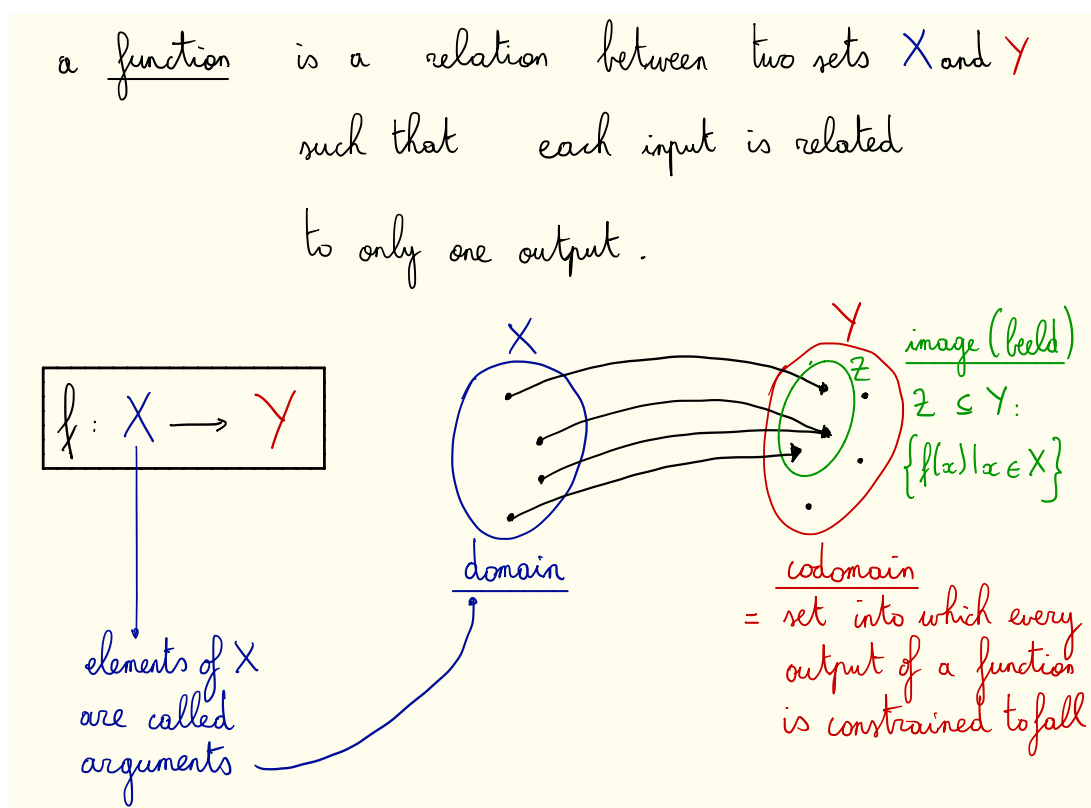 a function is a relation between two sets X and Y
such that each input is related
to only one output.
f: X → Y
elements of X
are called
arguments
X
domain
Y
Z
image (beeld)
Z ⊆ Y:
{f(x)|x ∈ X}
codomain
= set into which every
output of a function
is constrained to fall